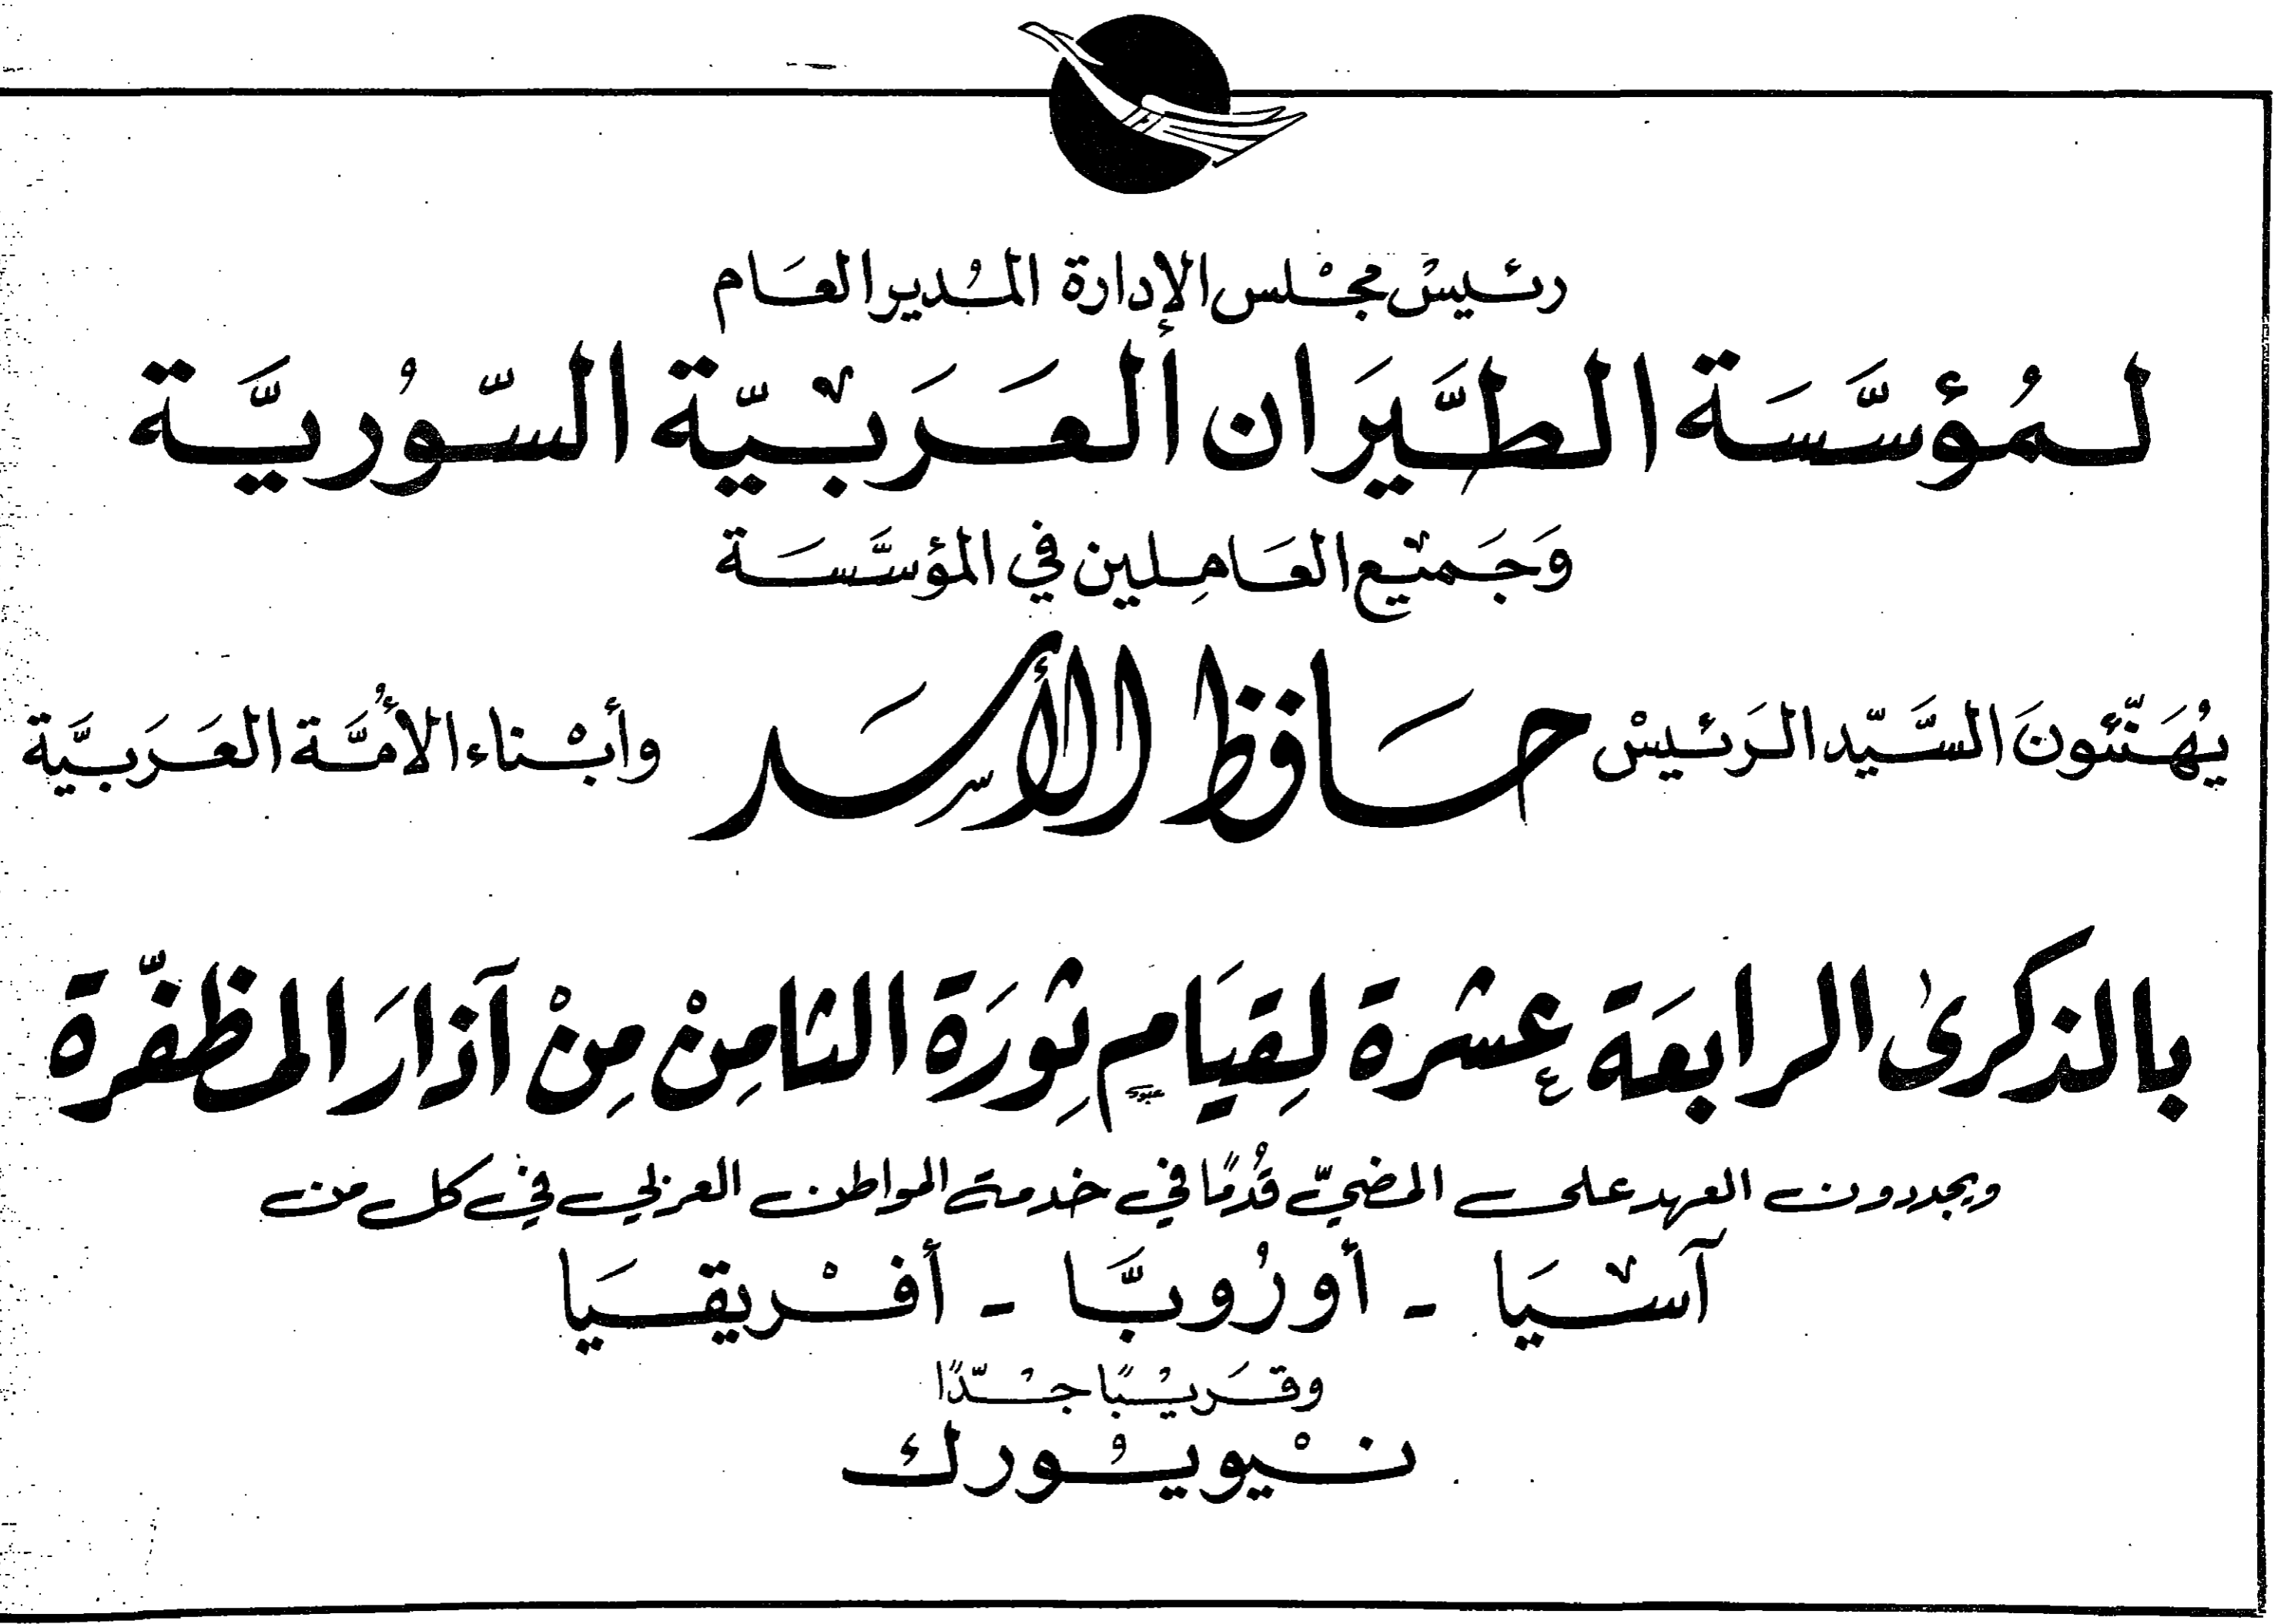 رئيس مجلس الإدارة المدير العام
لمُؤسَّسَة الطَّيَران العَرَبيّة السّوُريَّة
وَجَميْع العَامِلين في المؤسَّسَة
يُهَنّئونَ السَّيّد الرَئيسْ حَافظ الأسَد وأبْناء الأُمَّة العَرَبيَّة
بالذكرىٰ الرابعَة عشرة لِقيَام ثِورَة الثامِنْ مِنْ آذارَ المظفّرة
عبود
ويجددون العهد على المضيّ قُدُمًا في خدمة المواطن العربي في كل من
آسْيَا - أورُوبَّا - أفْريقيَا
وقَريْبًا جْدًّا
نْيويوُرك